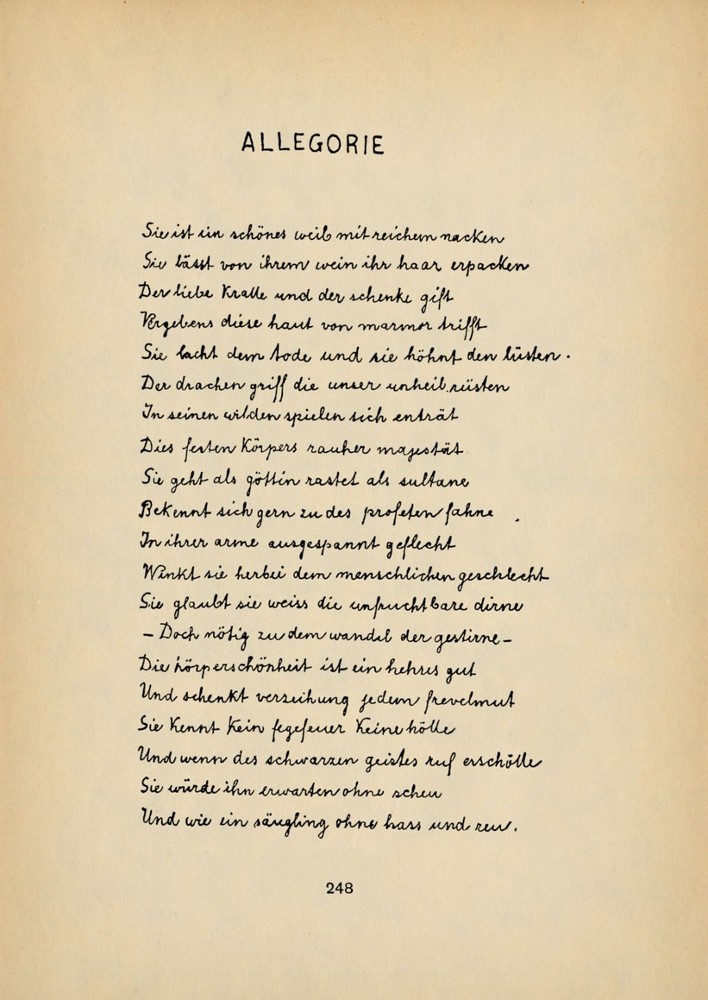 ALLEGORIE
Sie ist ein schönes weib mit reichem nacken
Sie lässt von ihrem wein ihr haar erpacken
Der liebe Kralle und der schenke gift
Vergebens diese haut von marmor trifft
Sie lacht dem tode und sie höhnt den lüsten.
Der drachen griff die unser unheil rüsten
In seinen wilden spielen sich enträt
Dies festen Körpers rauher majestät.
Sie geht als göttin rastet als sultane
Bekennt sich gern zu des profeten fahne
In ihrer arme ausgespannt geflecht
Winkt sie herbei dem menschlichen geschlecht
Sie glaubt sie weiss die unfruchtbare dirne
– Doch nötig zu dem wandel der gestirne –
Die körperschönheit ist ein hehres gut
Und schenkt verzeihung jedem frevelmut
Sie Kennt Kein fegefeuer Keine hölle
Und wenn des schwarzen geistes ruf erschölle
Sie würde ihn erwarten ohne scheu
Und wie ein säugling ohne hass und reu.
248